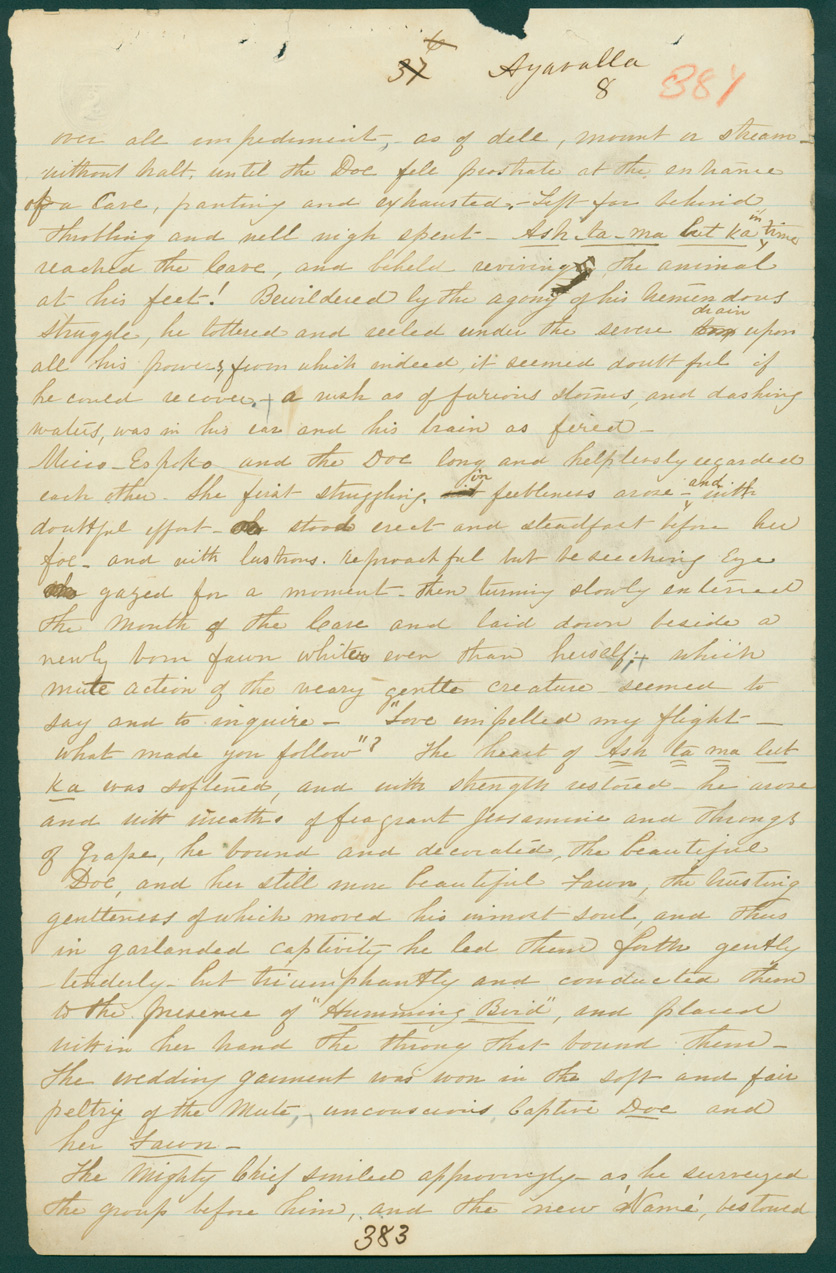 6
37 Ayavalla
8 384
over all impediment, - as of dell, mount or stream -
without halt, until the Doe fell prostrate at the entrance
of a Cave, panting and exhausted. - Left far behind
Throbbing and well nigh spent - Ash-ta-ma lut ka in time
reached the Cave, and beheld reviving, the animal
at his feet! Bewildered by the agony of his tremendous
struggle, he tottered and reeled under the severe drain upon
all his powers, from which indeed it seemed doubtful if
he could recover. + a rush as of furious storms, and dashing
waters, was in his ear and his brain as fired -
Mico-Espoko and the Doe long and helplessly regarded
each other. She first struggling in feebleness arose - and with
doubtful effort - stood erect and steadfast before her
foe - and with lustrous, reproachful but beseeching Eye
gazed for a moment - then turning slowly entered
the Mouth of the Cave and laid down beside a
newly born fawn whiter even than herself; + which
mute action of the weary - gentle creature - seemed to
say and to inquire - "Love impelled my flight -
what made you follow"? The heart of Ash ta ma lut
ka was softened, and with strength restored - he arose
and with wreaths of fragrant Jessamine and throngs
of Grape, he bound and decorated, the beautiful
Doe, and her still more beautiful Fawn, the trusting
gentleness of which moved his inmost soul, and thus
in garlanded captivity he led them forth gently
- tenderly - but triumphantly and conducted them
to the presence of "Humming Bird", and placed
within her hand the throng that bound them -
The wedding garment was won in the soft and fair
peltry of the Mute, unconscious, Captive Doe and
her Fawn -
The Mighty Chief smiled approvingly - as he surveyed
the group before him, and the new 'Name', bestowed
383